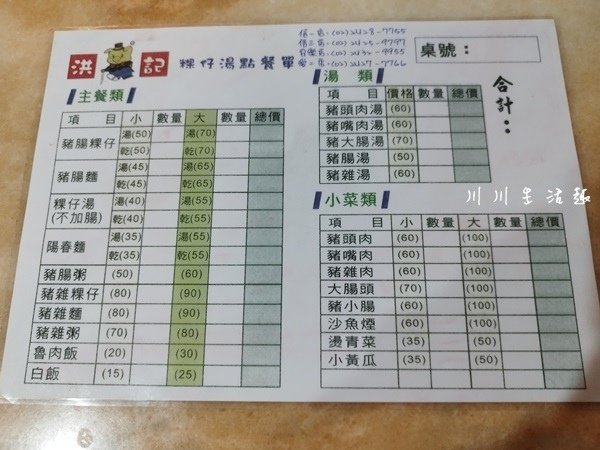 洪記 粿仔湯點餐單
信一店:(02)2428-7755
信三店:(02)2425-9797
(02)2432-9955
愛三店:(02)2427-7766
桌號:
合計:
主餐類
項 目 小 數量 大 數量 總價
豬腸粿仔 湯(50) 湯(70)
乾(50) 乾(70)
豬腸麵 湯(45) 湯(65)
乾(45) 乾(65)
粿仔湯 湯(40) 湯(55)
(不加腸) 乾(40) 乾(55)
陽春麵 湯(35) 湯(55)
乾(35) 乾(55)
豬腸粥 (50) (60)
豬雜粿仔 (80) (90)
豬雜麵 (80) (90)
豬雜粥 (70) (80)
魯肉飯 (20) (30)
白飯 (15) (25)
湯 類
項 目 價格 數量 總價
豬頭肉湯 (60)
豬嘴肉湯 (60)
豬大腸湯 (70)
豬腸湯 (50)
豬雜湯 (60)
小菜類
項 目 小 數量 大 數量 總價
豬頭肉 (60) (100)
豬嘴肉 (60) (100)
豬雜肉 (60) (100)
大腸頭 (70) (100)
豬小腸 (60) (100)
沙魚煙 (60) (100)
燙青菜 (35) (50)
小黃瓜 (35) (50)
川川生活趣